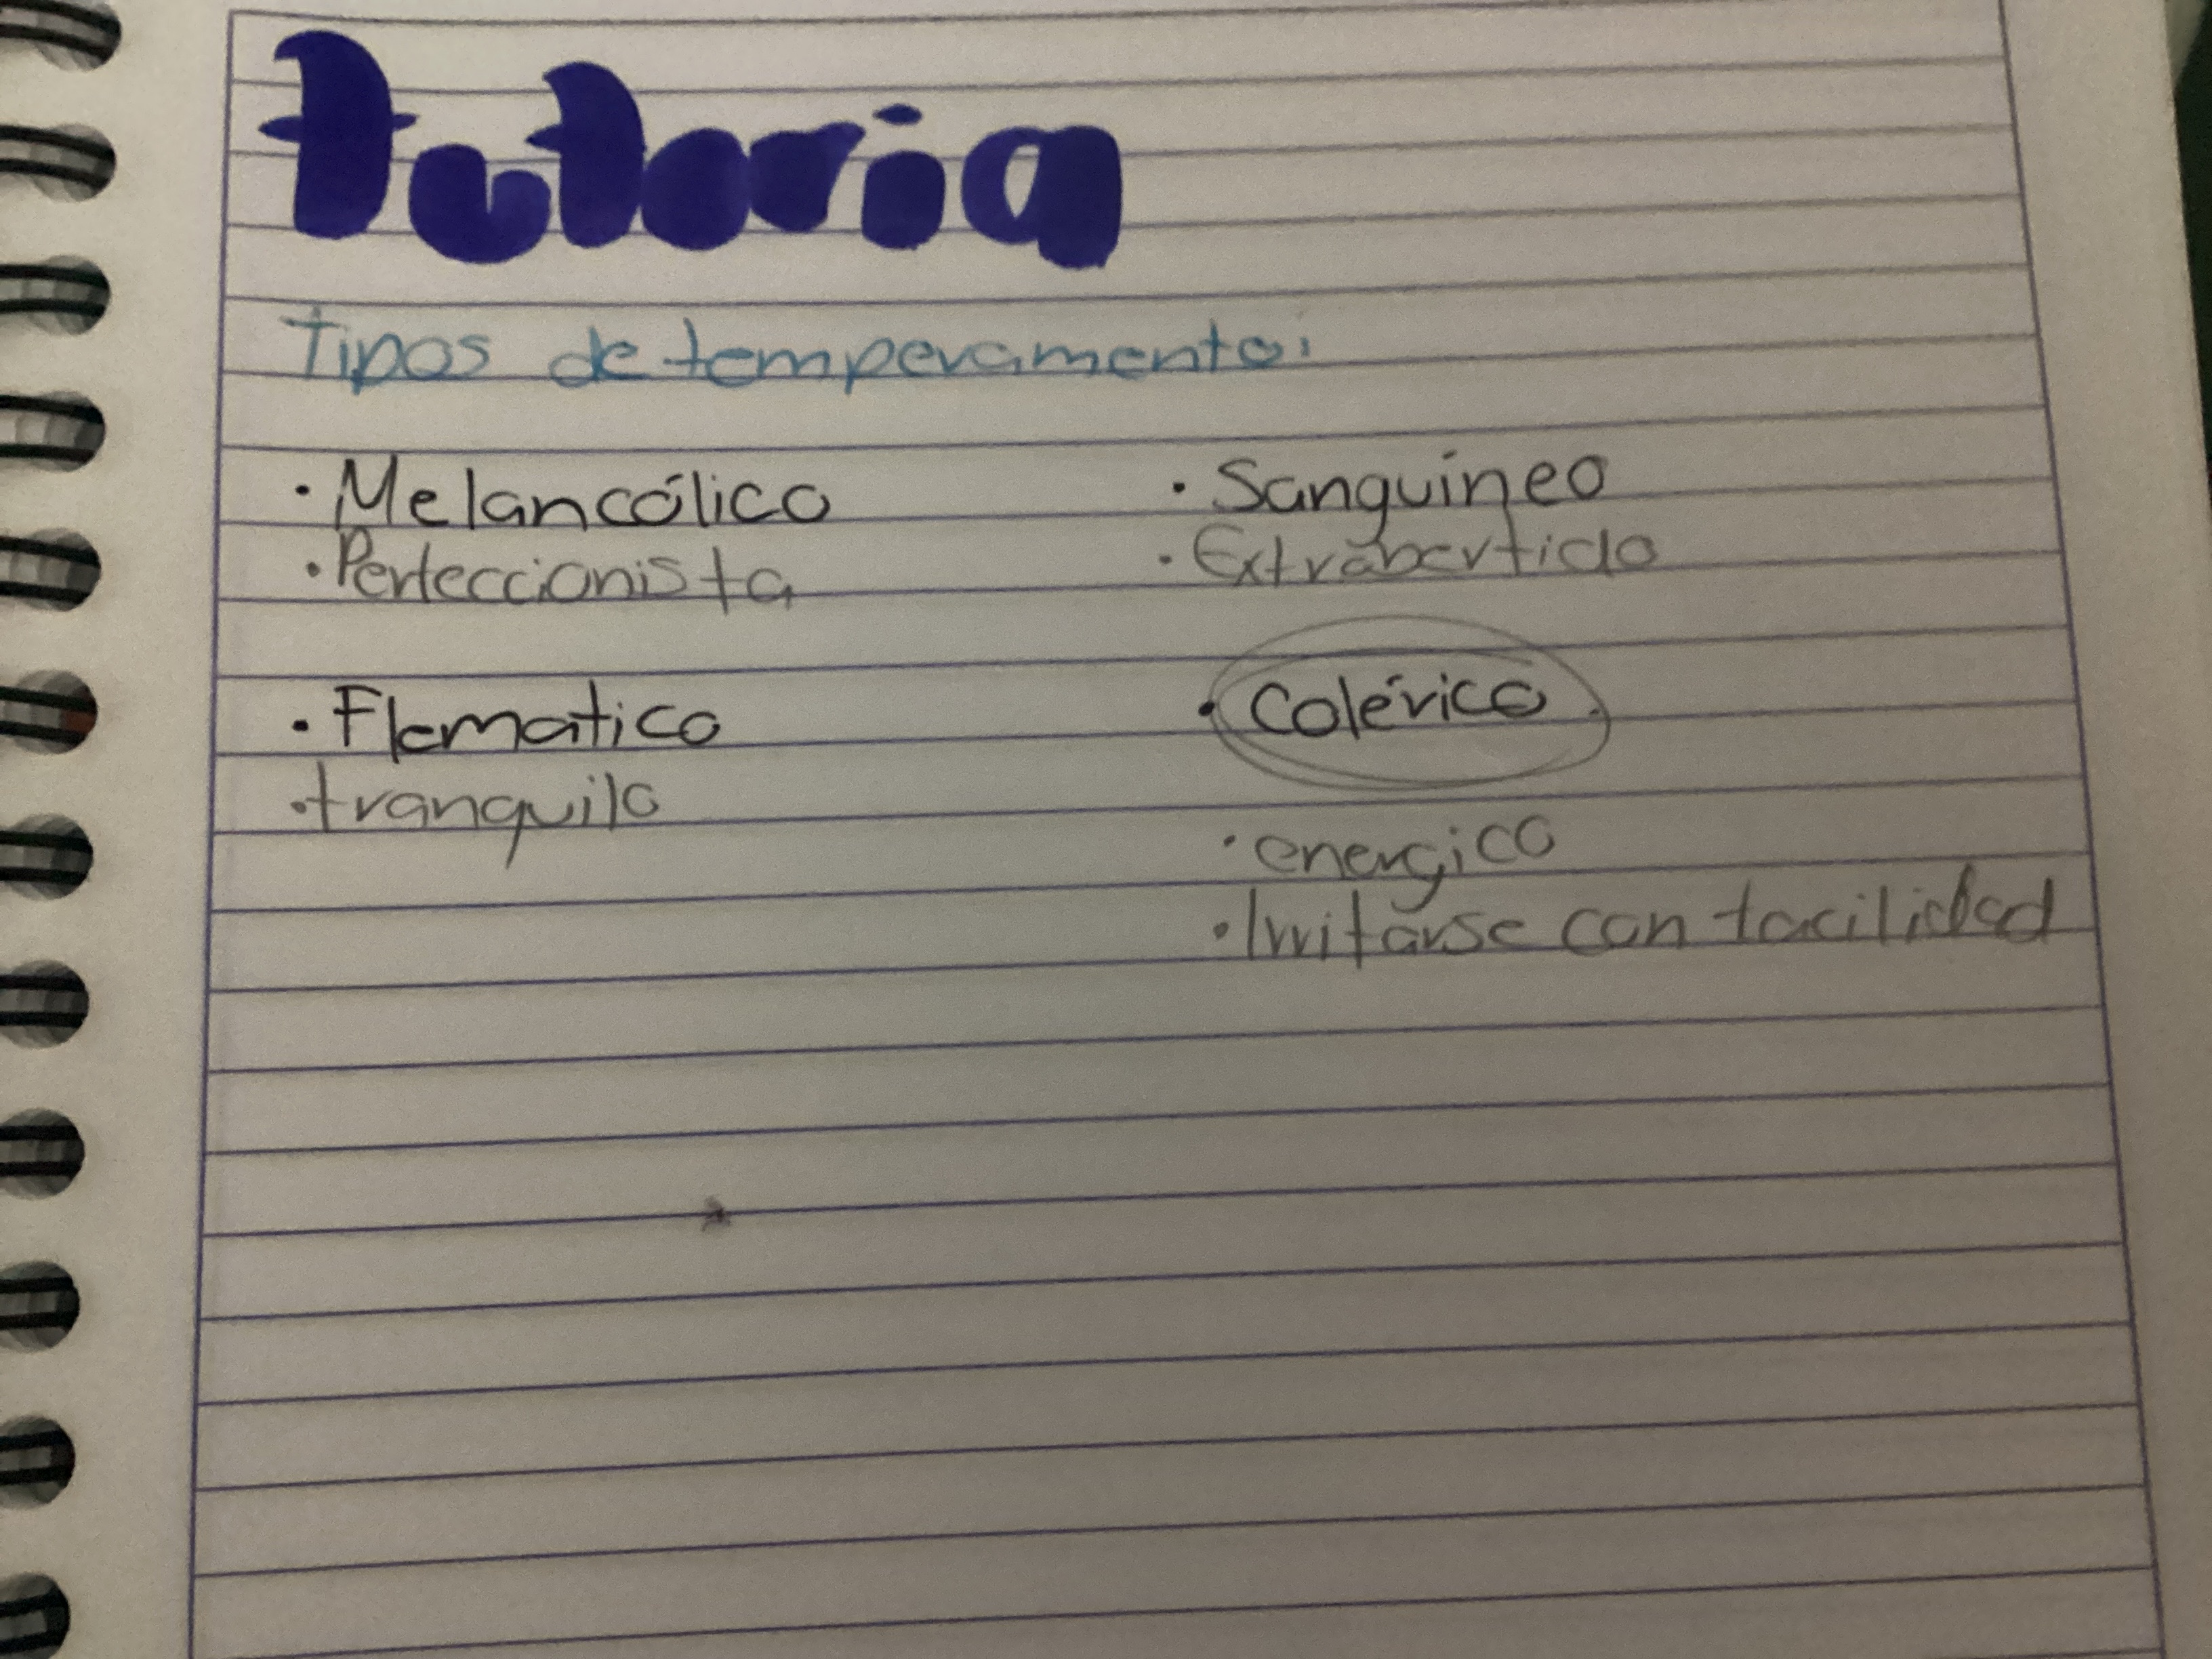 tutoria
Tipos de temperamento:
· Melancólico
· Perfeccionista
· Sanguíneo
· Extrabertido
· Flematico
· tranquilo
· Colérico.
· energico
· Irritarse con facilidad